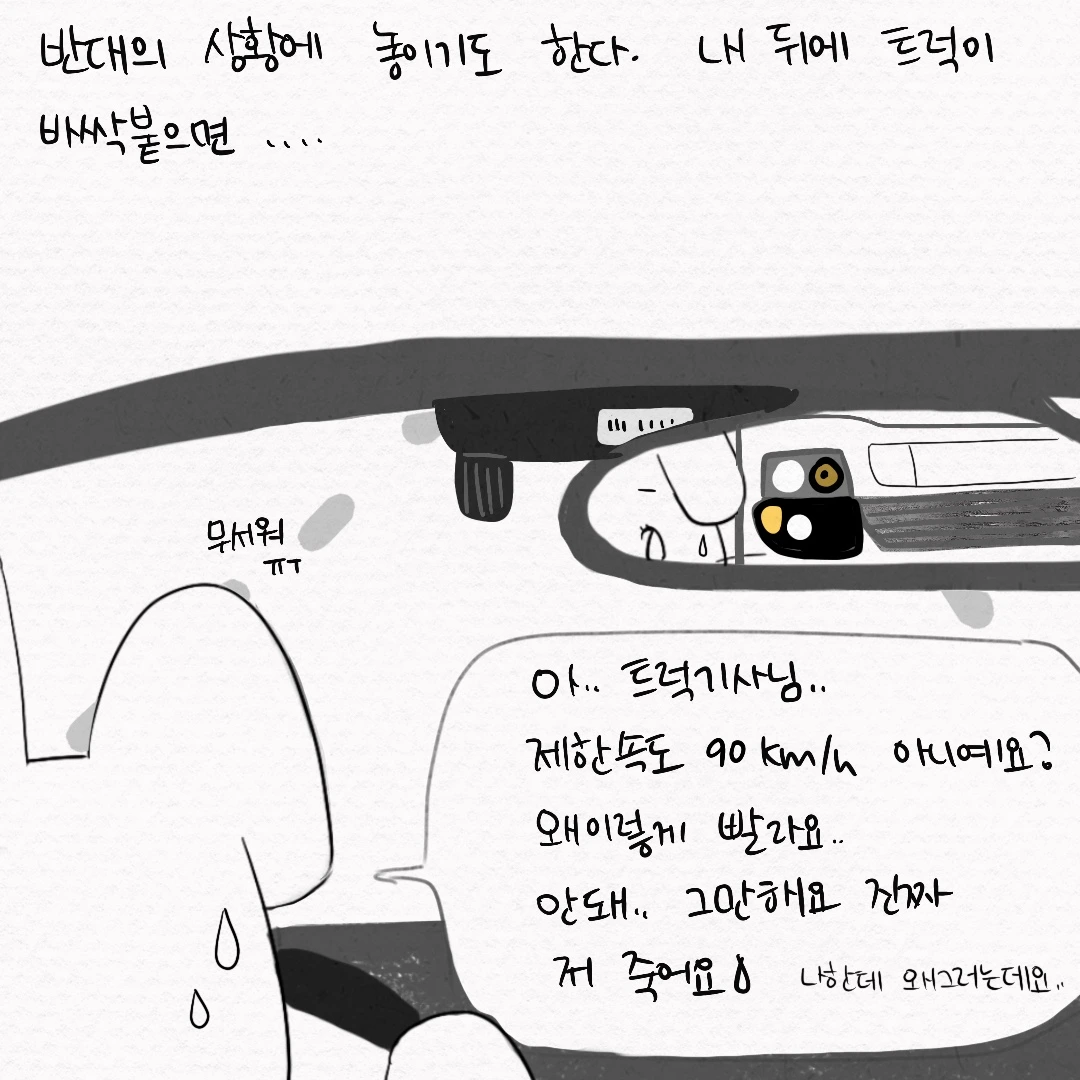 반대의 상황에 놓이기도 한다. 내 뒤에 트럭이
바싹붙으면 ....
무서워
ㅠㅜ
아.. 트럭기사님..
제한속도 90km/h 아니예요?
왜이렇게 빨라요..
안돼.. 그만해요 진짜
저 죽어요
나한데 왜그러는데요..